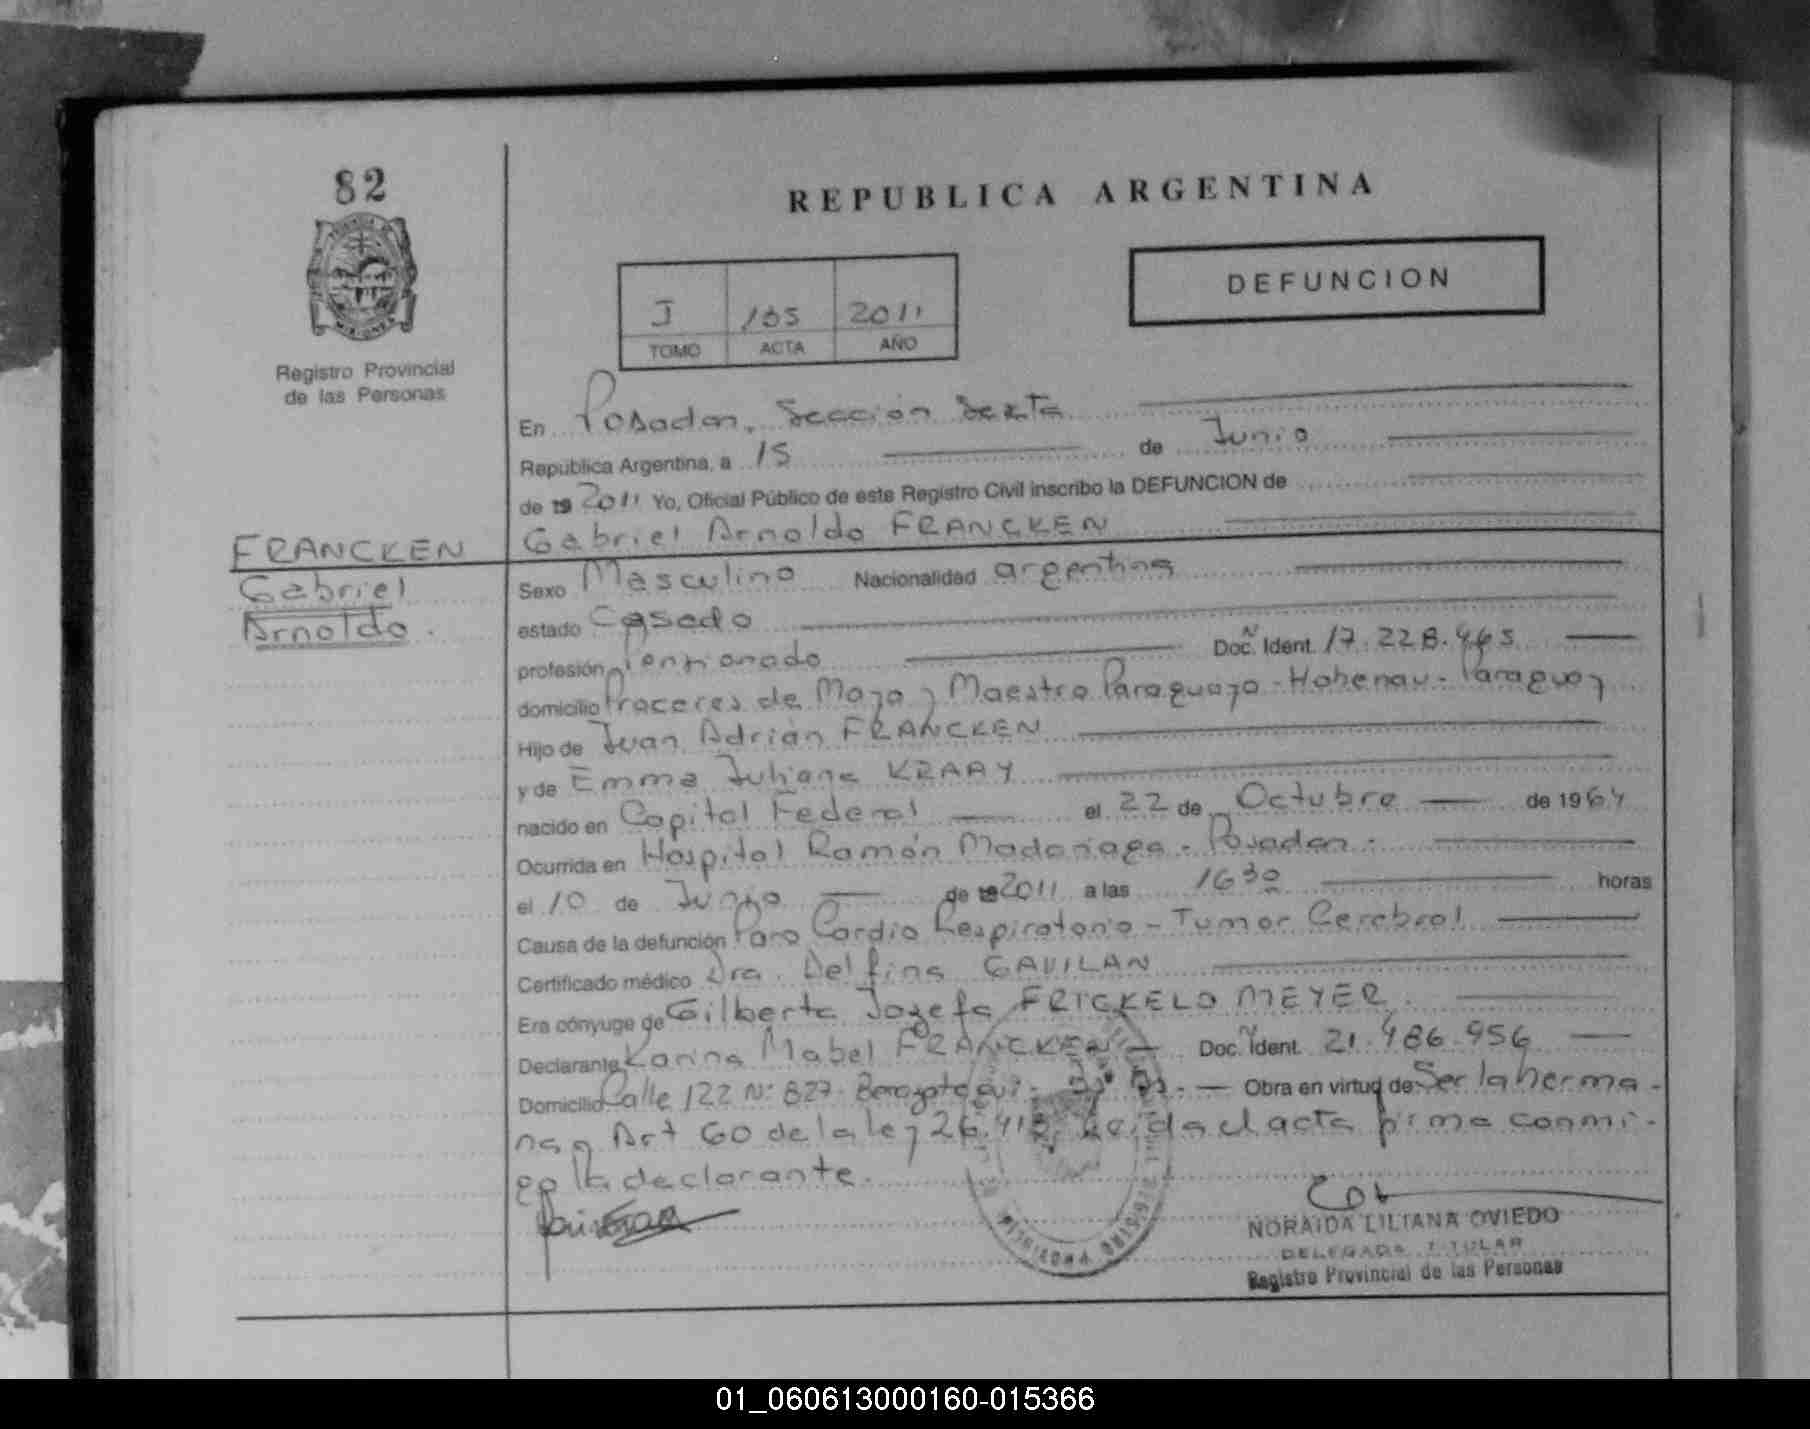 82
REPUBLICA ARGENTINA
DEFUNCION
J 105 2011
TOMO ACTA AÑO
Registro Provincial
de las Personas
En Posadas, Sección Sexta
República Argentina, a 15 de Junio
de 19 2011 Yo, Oficial Público de este Registro Civil inscribo la DEFUNCION de
Gabriel Arnoldo FRANCKEN
FRANCKEN
Gabriel
Arnoldo.
Sexo Masculino Nacionalidad argentina
estado Casado
profesión Pensionado Doc. Nº Ident. 17.228.465
domicilio Proceres de Mayo y Maestro Paraguayo - Hohenau - Paraguay
Hijo de Juan Adrián FRANCKEN
y de Emma Juliana KRAAY
nacido en Capital Federal el 22 de Octubre de 1964
Ocurrida en Hospital Ramón Madariaga - Posadas.
el 10 de Junio de 19 2011 a las 16 30 horas
Causa de la defunción Paro Cardio Respiratorio - Tumor Cerebral
Certificado médico Dra. Delfina GAVILAN
Era cónyuge de Gilberta Jozefa FRICKELO MEYER.
Declarante Karina Mabel FRANCKEN - Doc. Nº Ident. 21.486.956
Domicilio Calle 122 Nº 827 - Berazategui - Bs Bs. - Obra en virtud de Ser la herma-
na y Art 60 de la ley 26.413. Leida el acta firma conmi-
go la declarante.
NORAIDA LILIANA OVIEDO
DELEGADA TITULAR
Registro Provincial de las Personas
01_060613000160-015366